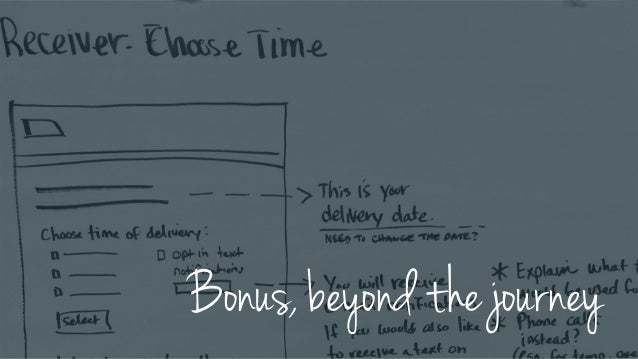 Receiver- Choose Time
This is your
delivery date.
NEED TO CHANGE THE DATE?
Choose time of delivery:
Opt in text
notifications
Select
You will receive
If you would also like
to receive a text on
* Explain what
used fo
* Phone call
instead?
Bonus, beyond the journey